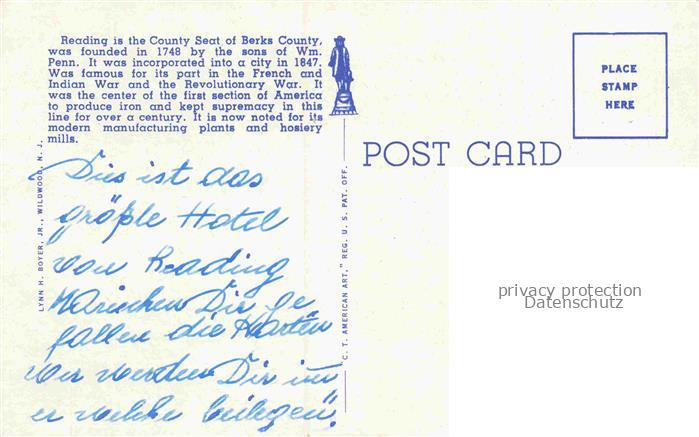 Reading is the County Seat of Berks County,
was founded in 1748 by the sons of Wm.
Penn. It was incorporated into a city in 1847.
Was famous for its part in the French and
Indian War and the Revolutionary War. It
was the center of the first section of America
to produce iron and kept supremacy in this
line for over a century. It is now noted for its
modern manufacturing plants and hosiery
mills.
Dies ist das
größte Hotel
von Reading
Mariechen Dir ge
fallen die Karten
wir werden Dir im
er welche beilegen".
LYNN H. BOYER, JR., WILDWOOD, N. J.
C. T. AMERICAN ART," REG. U. S. PAT. OFF.
POST CARD
PLACE
STAMP
HERE
privacy protection
Datenschutz